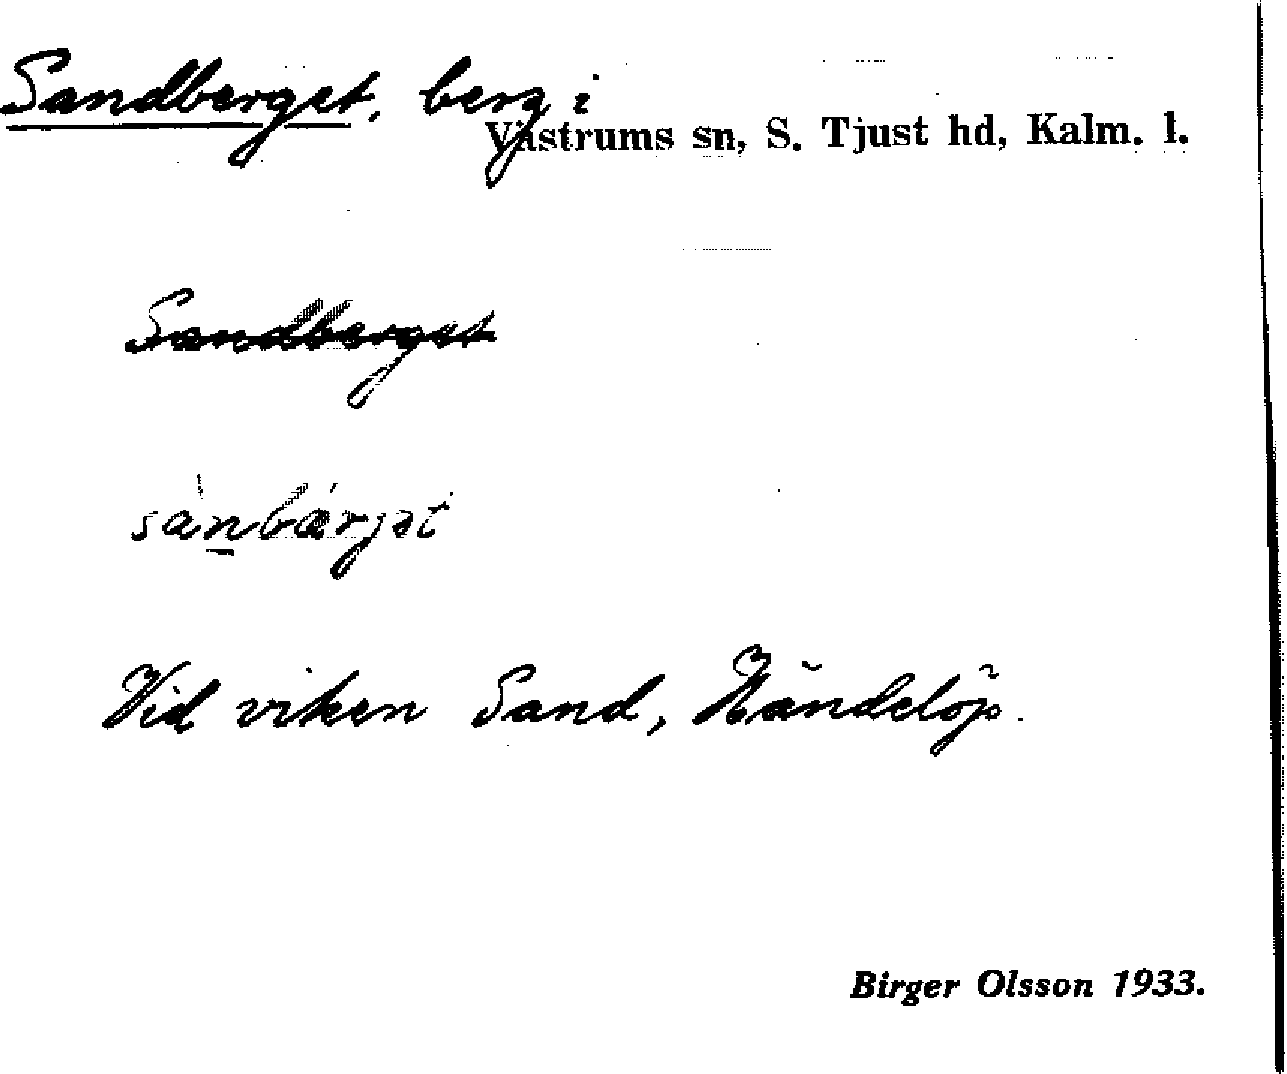 Sandberget, berg i
Västrums sn, S. Tjust hd, Kalm. l.
Sandberget
sànbǽrjət
Vid viken Sand, Händelöp.
Birger Olsson 1933.